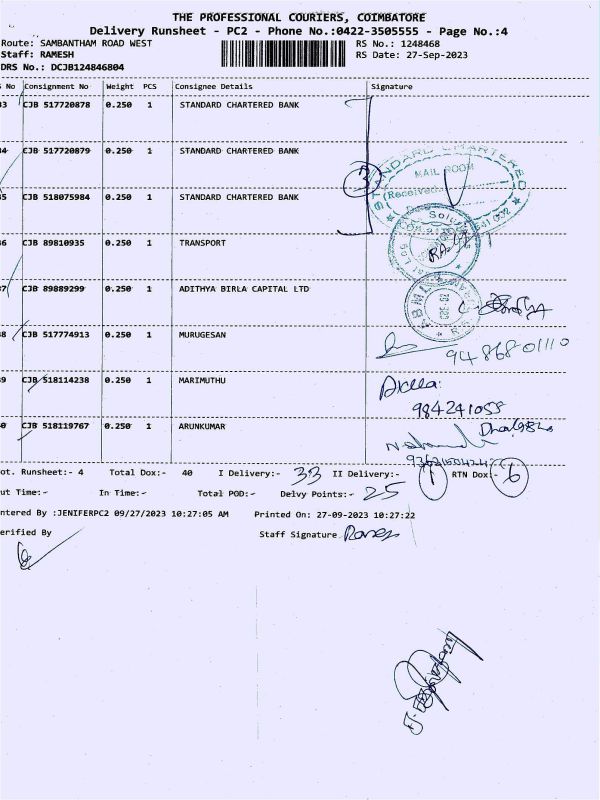 THE PROFESSIONAL COURIERS, COIMBATORE
Delivery Runsheet - PC2 - Phone No.:0422-3505555 - Page No.:4
Route: SAMBANTHAM ROAD WEST RS No.: 1248468
Staff: RAMESH RS Date: 27-Sep-2023
DRS No.: DCJB124846804
No Consignment No Weight PCS Consignee Details Signature
3 CJB 517720878 0.250 1 STANDARD CHARTERED BANK
4 CJB 517720879 0.250 1 STANDARD CHARTERED BANK
3
STANDARD CHARTERED
MAIL ROOM
Received
5 CJB 518075984 0.250 1 STANDARD CHARTERED BANK
6 CJB 89810935 0.250 1 TRANSPORT
7 CJB 89889299 0.250 1 ADITHYA BIRLA CAPITAL LTD
8 CJB 517774913 0.250 1 MURUGESAN
94868 01110
9 CJB 518114238 0.250 1 MARIMUTHU
984241055
0 CJB 518119767 0.250 1 ARUNKUMAR
ot. Runsheet:- 4 Total Dox:- 40 I Delivery:- 33 II Delivery:- 1 RTN Dox:- 6
ut Time:- In Time:- Total POD:- Delvy Points:- 25
ntered By :JENIFERPC2 09/27/2023 10:27:05 AM Printed On: 27-09-2023 10:27:22
erified By Staff Signature